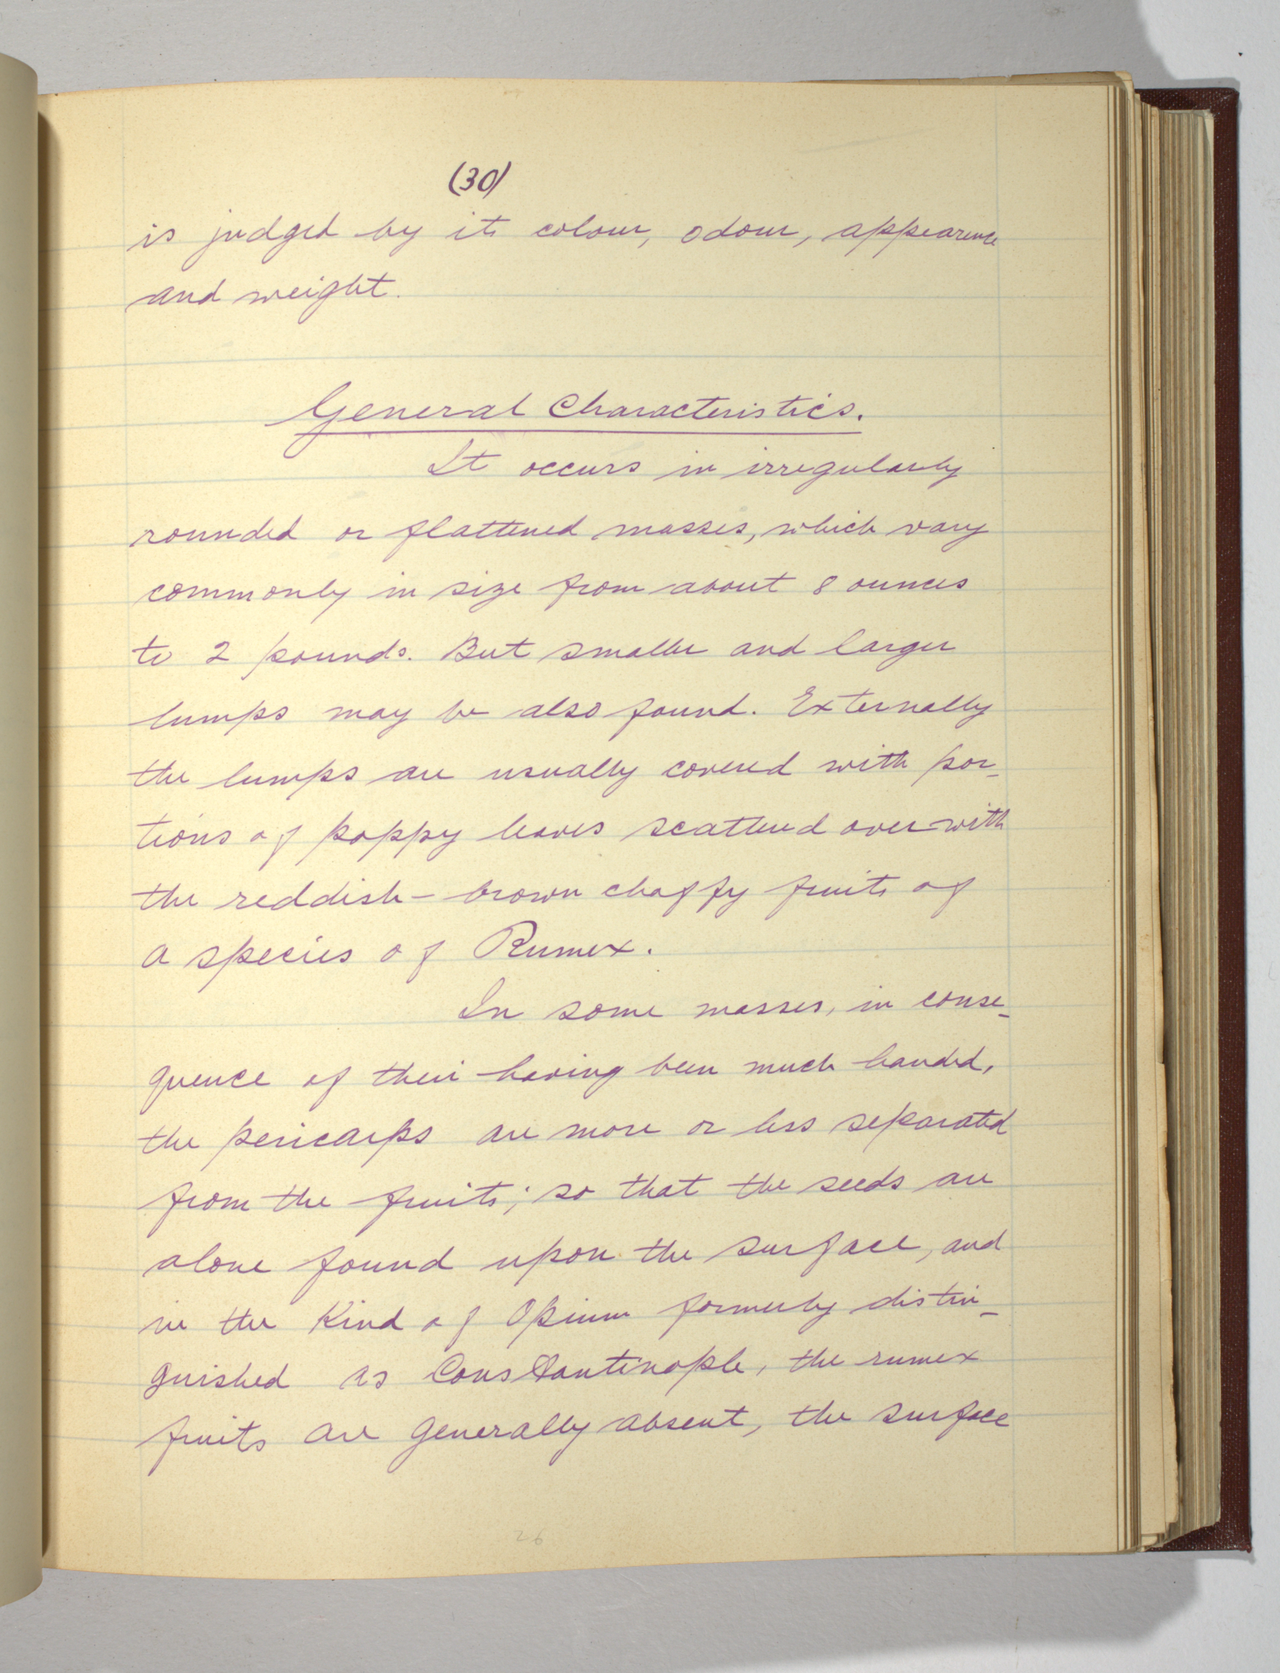 (30)
is judged by its colour, odour, appearence
and weight.
General Characteristics.
It occurs in irregularly
rounded or flattened masses, which vary
commonly in size from about 8 ounces
to 2 pounds. But smaller and larger
lumps may be also found. Externally
the lumps are usually covered with por-
tions of poppy leaves scattered over with
the reddish-brown chaffy fruits of
a species of Rumex.
In some masses, in conse-
quence of their having been much handed,
the pericarps are more or less separated
from the fruits; so that the seeds are
alone found upon the surface, and
in the Kind of Opium formerly distin-
guished as Constantinople, the rumex
fruits are generally absent, the surface
26